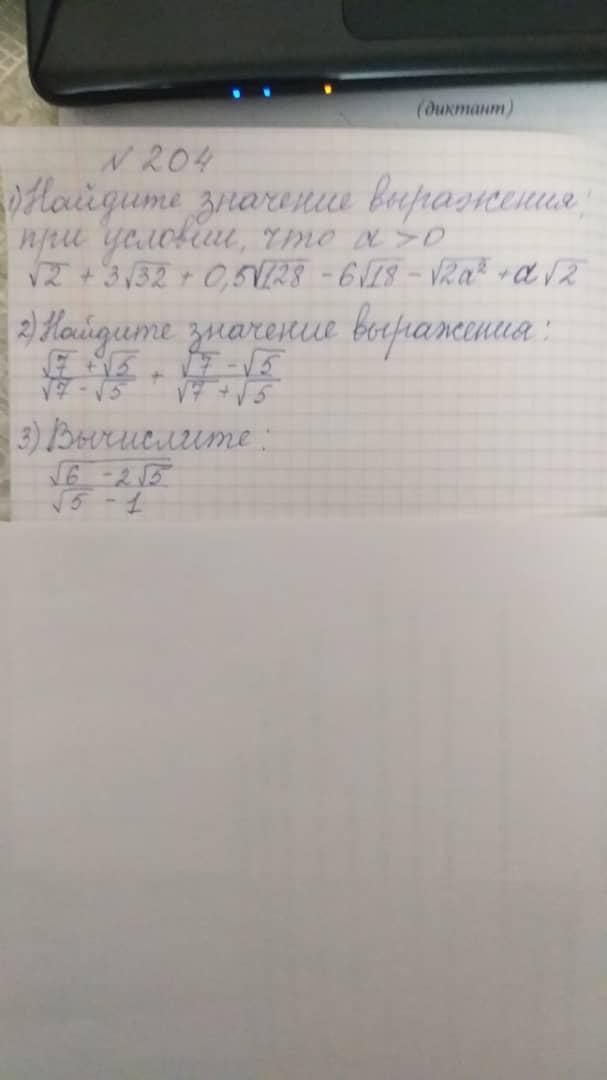 (диктант)
№ 204
1) Найдите значение выражения,
при условии, что a > 0
√2 + 3√32 + 0,5√128 - 6√18 - √2a² + a√2
2) Найдите значение выражения:
(√7 + √5)/(√7 - √5) + (√7 - √5)/(√7 + √5)
3) Вычислите:
√(6 - 2√5)
√5 - 1